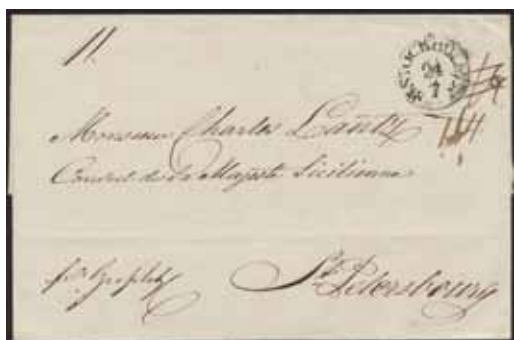 11.
STOCKHOLM
24
7
Monsieur Charles
Consul de Sa Majesté Sicilienne
St. Petersbourg